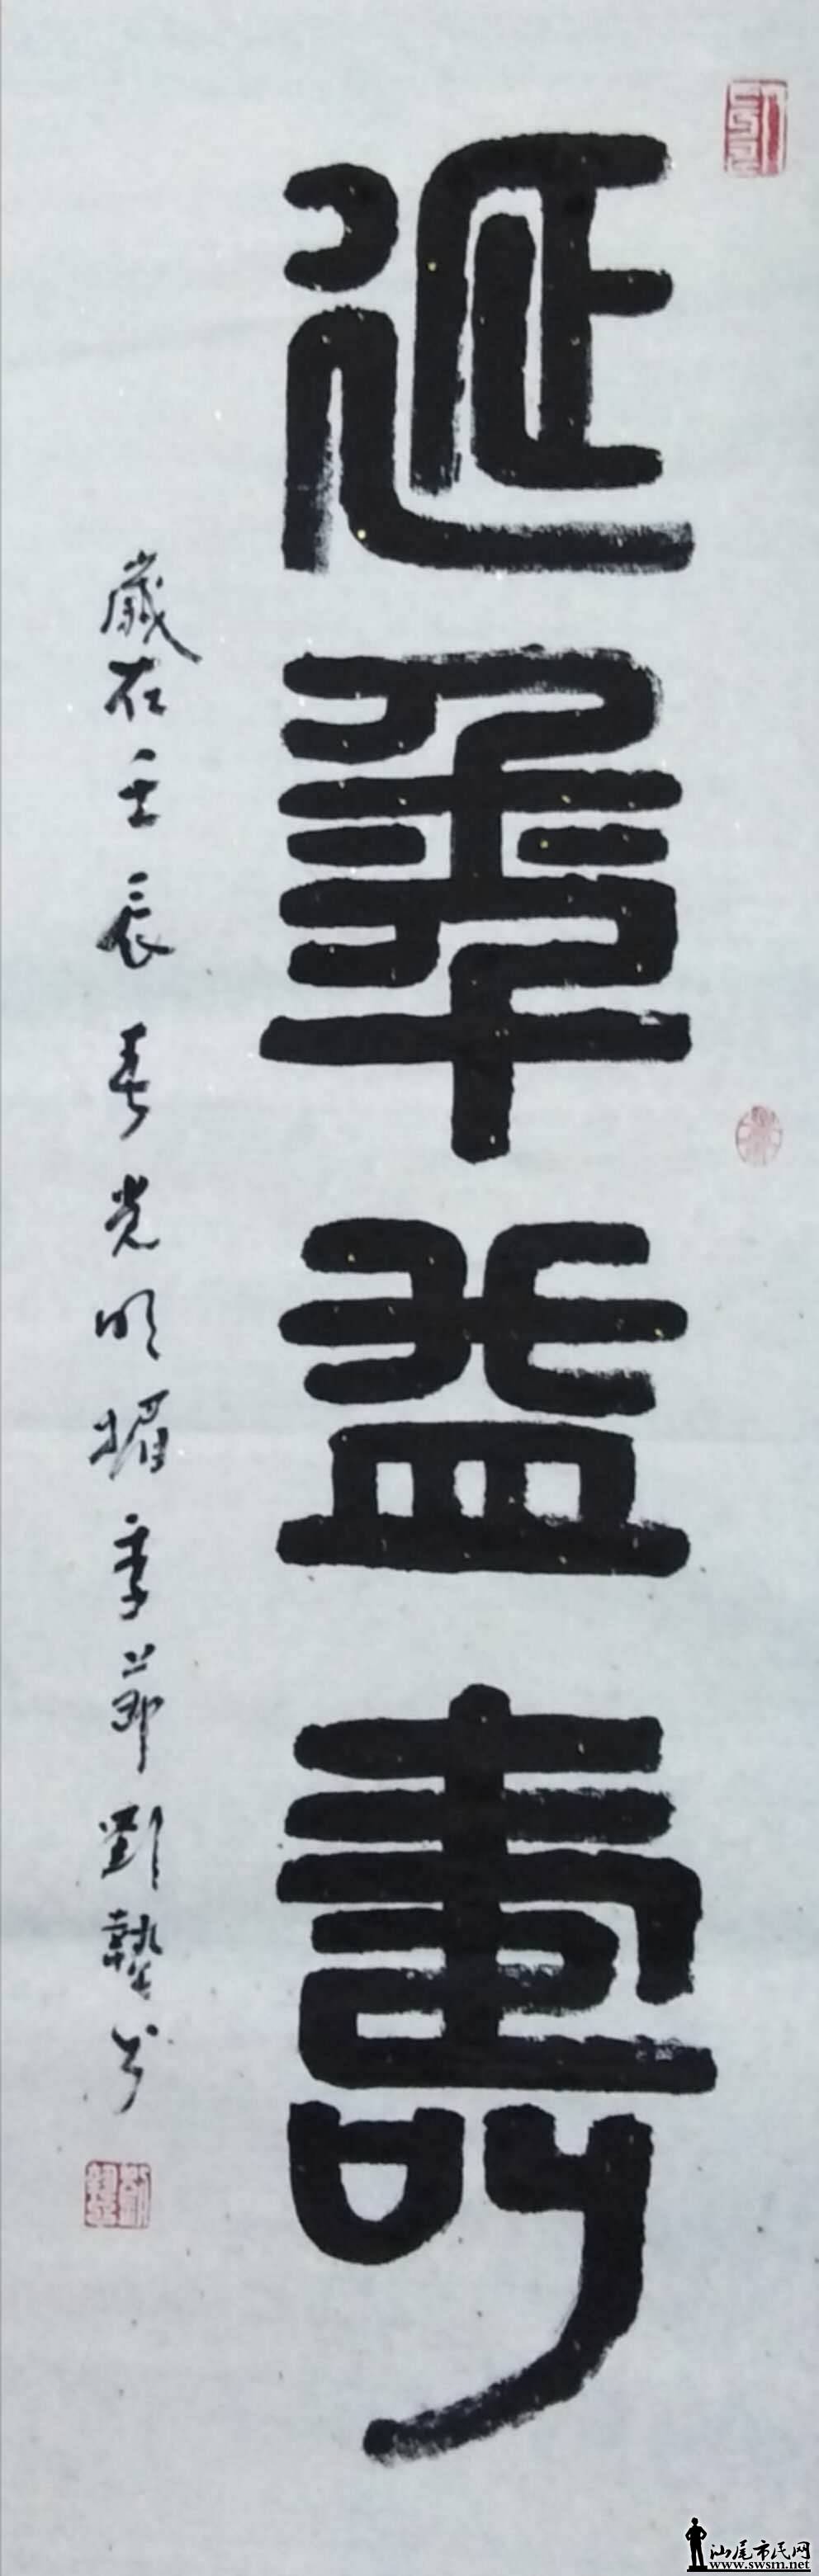 延年益壽
歲在壬辰春光明媚季節劉
汕尾市民网
www.swsm.net